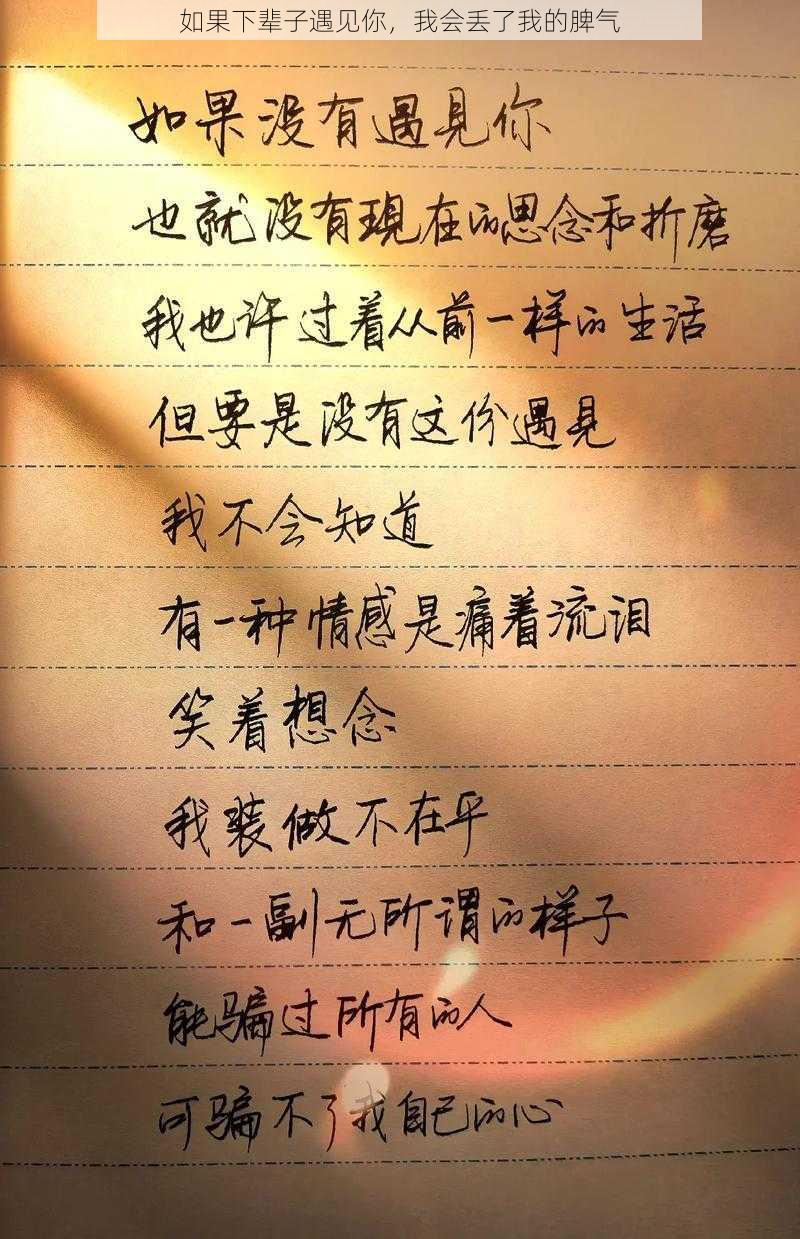 如果下辈子遇见你，我会丢了我的脾气
如果没有遇見你
也就没有現在的思念和折磨
我也许过着从前一样的生活
但要是没有这份遇見
我不会知道
有一种情感是痛着流泪
笑着想念
我装做不在乎
和一副无所谓的样子
能骗过所有的人
可骗不了我自己的心